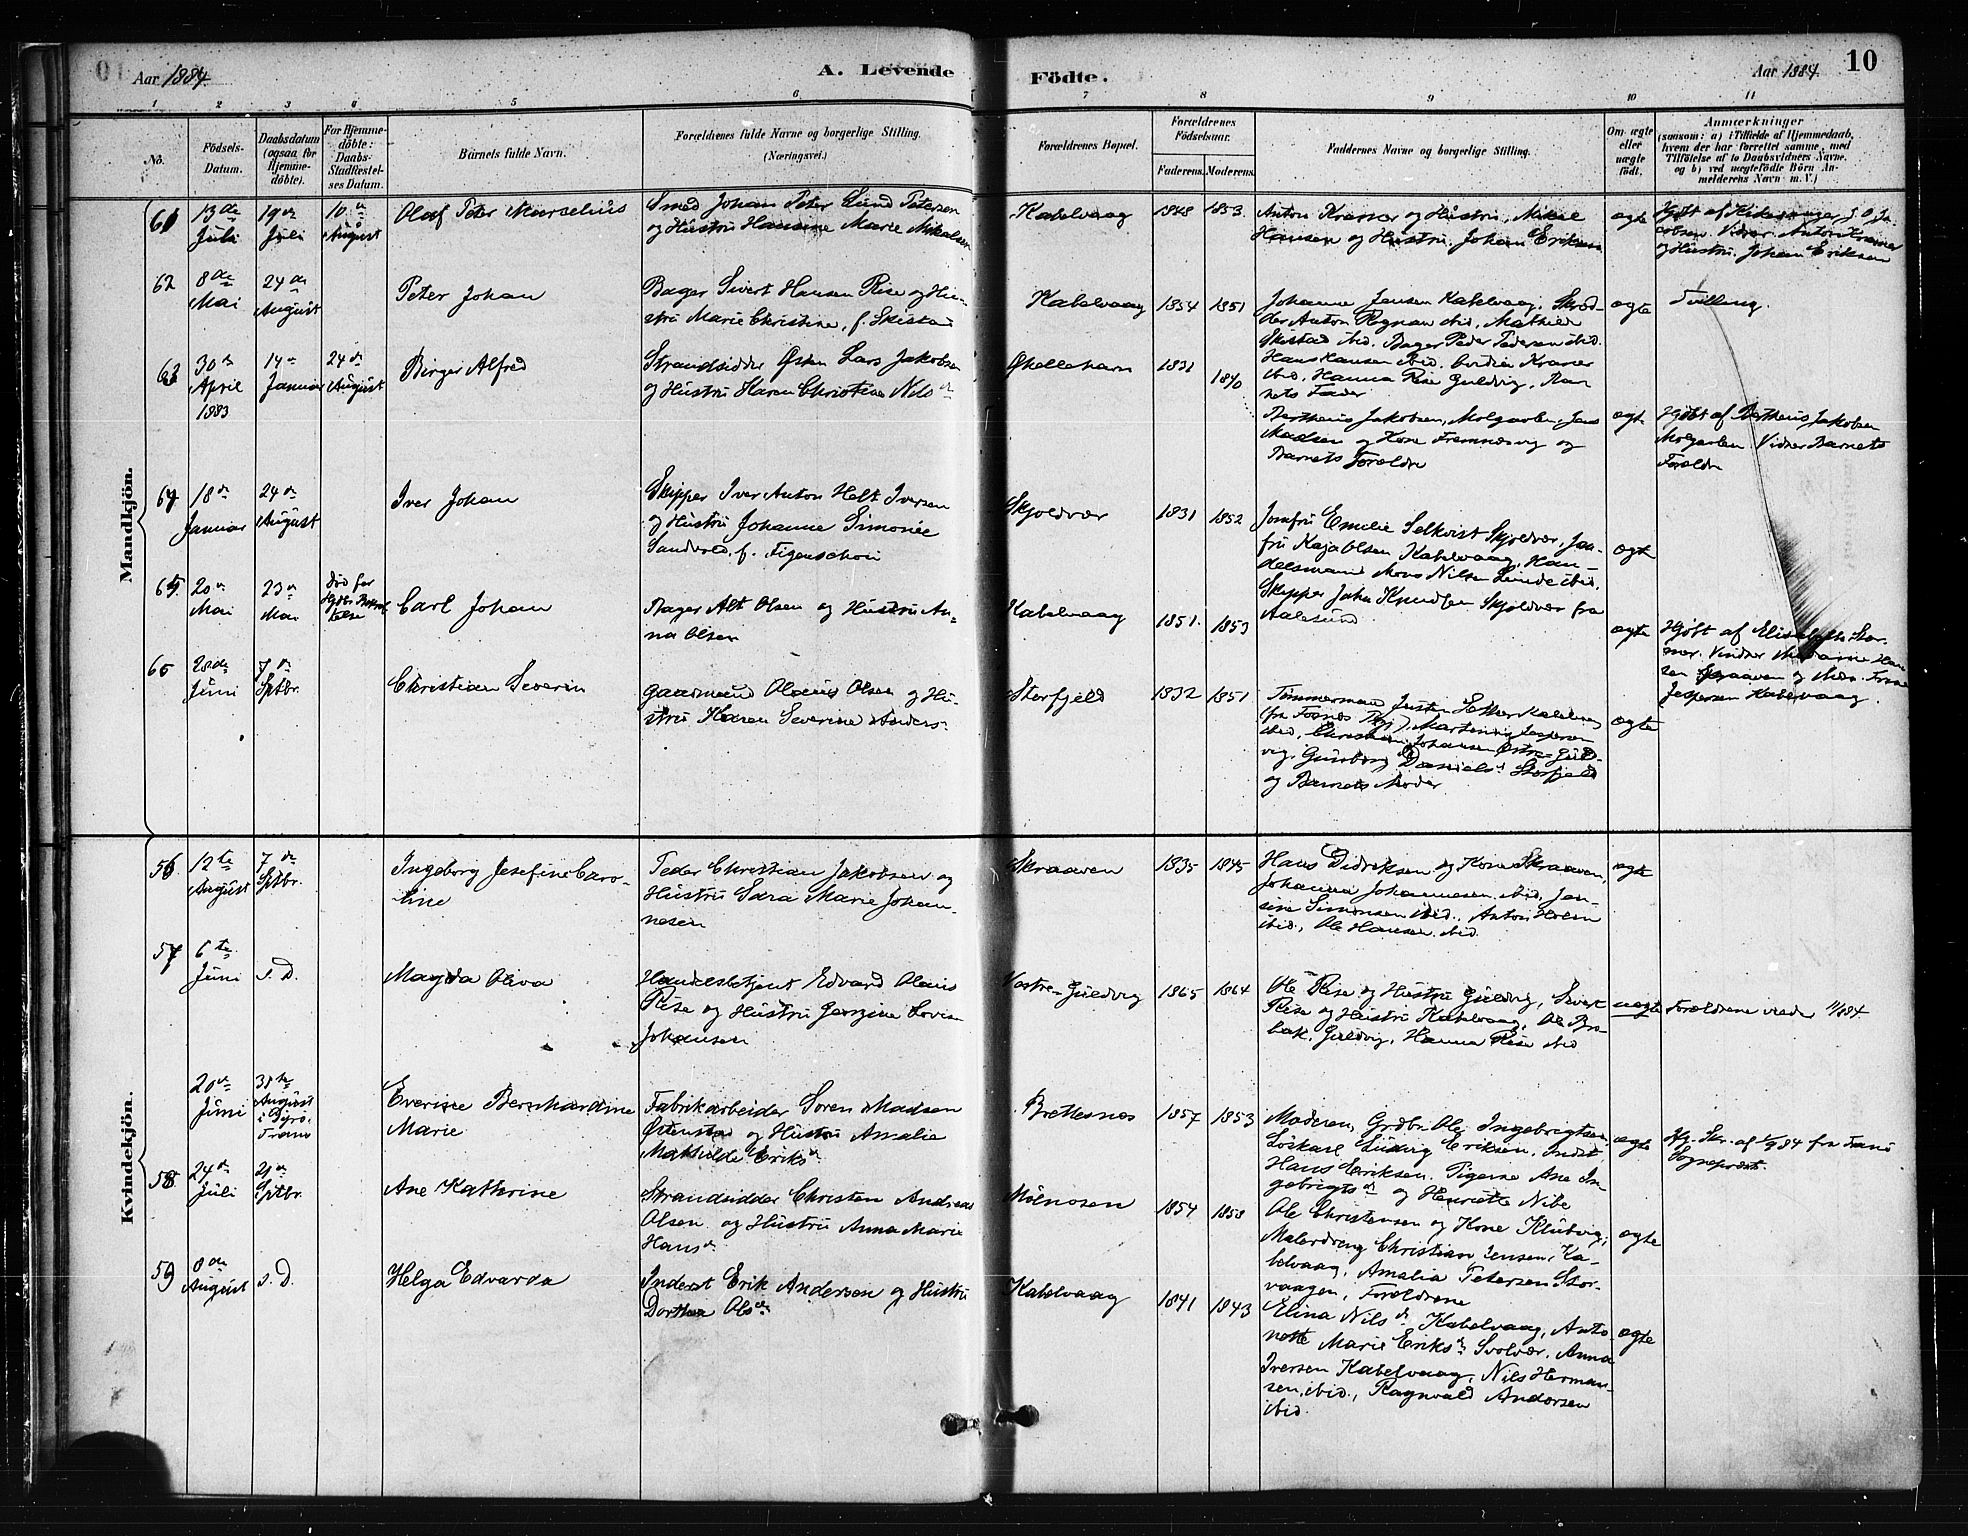 Aar 1884.
A. Levende
Födte.
Aar 1884.
10
1 2 3 4 5 6 7 8 9 10 11
No.
Födsels-
Datum.
Daabsdatum
(ogsaa for
Hjemme-
döbte).
For Hjemme-
döbte:
Daabs-
Stadfæstel-
ses Datum.
Barnets fulde Navn.
Forældrenes fulde Navne og borgerlige Stilling.
(Næringsvei.)
Forældrenes Bopæl.
Forældrenes
Födselsaar.
Faderens. Moderens.
Faddernes Navne og borgerlige Stilling.
Om ægte
eller
uægte
födt.
Anmærkninger
(saasom: a) i Tilfælde af Hjemmedaab,
hvem der har forrettet samme, med
Tilföielse af to Daabsvidners Navne,
og b) ved uægtefödte Börn An-
melderens Navn m. V.)
Mandkjön.
61
13de
Juli
19de
Juli
10de
August
Olaf Peter Marselius
Smed Johan Peter Lund Petersen
og Hustru Hansine Marie Mikalsen
Kabelvaag
1848 1853
Anton Kræmer og Hustru, Mikal
Hansen og Hustru, Johan Eriksen
ægte
Hjdbt af Kirkesanger J. O. Ja-
cobsen. Vidner Anton Kræmer
og Hustru. Johan Eriksen
62
8de
Mai
24de
August
Peter Johan
Bager Sivert Hansen Rise og Hu-
stru Marie Christine, f. Skistad
Kabelvaag
1854 1851
Johanna Jensen Kabelvaag, Skræd-
der Anton Rognan ibid, Mathias
Skistad ibid. Bager Peder Pedersen ibid.
Hans Hansen ibid, Kræmer
ibid, Hanna Rise Guldvig, Bar-
nets Fader
ægte
Tvilling.
63
30te
April
1883
14de
Januar
24de
August
Birger Alfred
Strandsidder Østen Lars Jakobsen
og Hustru Karen Christine Nilsdr
1831
1840
Bertheus Jakobsen, Molgaarden, Jens
Madsen og Kone Fremnesvig og
Barnets Forældre
ægte
Hjdbt af Bertheus Jakobsen
Molgaarden Vidner Barnets
Forældre
64
18de
Januar
24de
August
Iver Johan
Skipper Iver Anton Holt Iversen
og Hustru Johanne Simonie
Sandvold, f. Figenschou
Skjoldvær
1831 1852
Jomfru Emilie Selkvist Skjoldvær, Jom-
fru Kaja Olsen Kabelvaag, Han-
delsmand Mons Nilsen Lunde ibid.
Skipper Johan Knudsen Skjoldvær fra
Aalesund
ægte
65
20de
Mai
23de
Mai
Død før
Carl Johan
Bager Alt Olsen og Hustru An-
na Olsen
Kabelvaag
1851. 1853
ægte
Hjdbt af Elisabeth Stor-
mer. Vidner Madame Han-
sen Skraaven og Mdm.
Jespersen Kabelvaag.
65
28de
Juni
7de
Sptbr.
Christian Severin
Gaardmand Olaus Olsen og Hu-
stru Karen Severine Anders-
Storfjeld
1832 1851
Tømmermand Kabelvaag
(fra Fosnes Thj.), Jespersen
ibid, Christian Johansen Østre-Guld-
vig, Gunborg Danielsdr Storfjeld
og Barnets Moder
ægte
Kvindekjön.
56
12te
August
7de
Sptbr.
Ingeborg Josefine Caro-
line
Peder Christian Jakobsen og
Hustru Sara Marie Johan-
nesen
Skraaven
1835 1845
Hans Didriksen og Kone Skraaven,
Johanna Johannesen ibid, Jen-
sine Simonsen ibid., Anton Holm
ibid., Ole Hansen ibid.
ægte
57
6te
Juni
s. D.
Magda Oliva
Handelsbetjent Edvard Olaus
Rise og Hustru Georgine Lovise
Johansen
Vestre-Guldvig
1865 1864
Ole Rise og Hustru Guldvig, Sivert
Rise og Hustru Kabelvaag, Ole Bro-
bak, Guldvig, Hanna Rise ibid
uægte
Forældrene viede 84.
20de
Juni
31te
August
i Dyrø
Tromsø
Everine Bernhardine
Marie
Fabrikarbeider Soren Madsen
Østenstad og Hustru Amalie
Mathilde Eriksdr
Brettesnes
1857 1853
Moderen, Grdbr. Ole Ingebrigtsen,
Løskarl Ludvig Eriksen, Indst.
Hans Eriksen, Pigerne Ane In-
gebrigtsdr og Henriette Nibe
ægte
84 fra Tranø
Sogneprest.
58
24de
Juli
21de
Sptbr.
Ane Kathrine
Strandsidder Christen Andreas
Olsen og Hustru Anna Marie
Hansdr
Mølnosen
1854 1858
Ole Christensen og Kone Klubvig,
Malerdreng Christian Jensen, Ka-
belvaag, Amalia Petersen Stor-
vaagen, Forældrene
ægte
59
8de
August
s. D.
Helga Edvarda
Inderst Erik Andersen og Hustru
Dorthea Olsdr
Kabelvaag
1841 1843
Elina Nilsdr Kabelvaag, Anto-
nette Marie Eriksdr Svolvær. Anna
Iversen Kabelvaag, Nils Herman-
sen, ibid., Ragnvald Andersen
ibid.
ægte